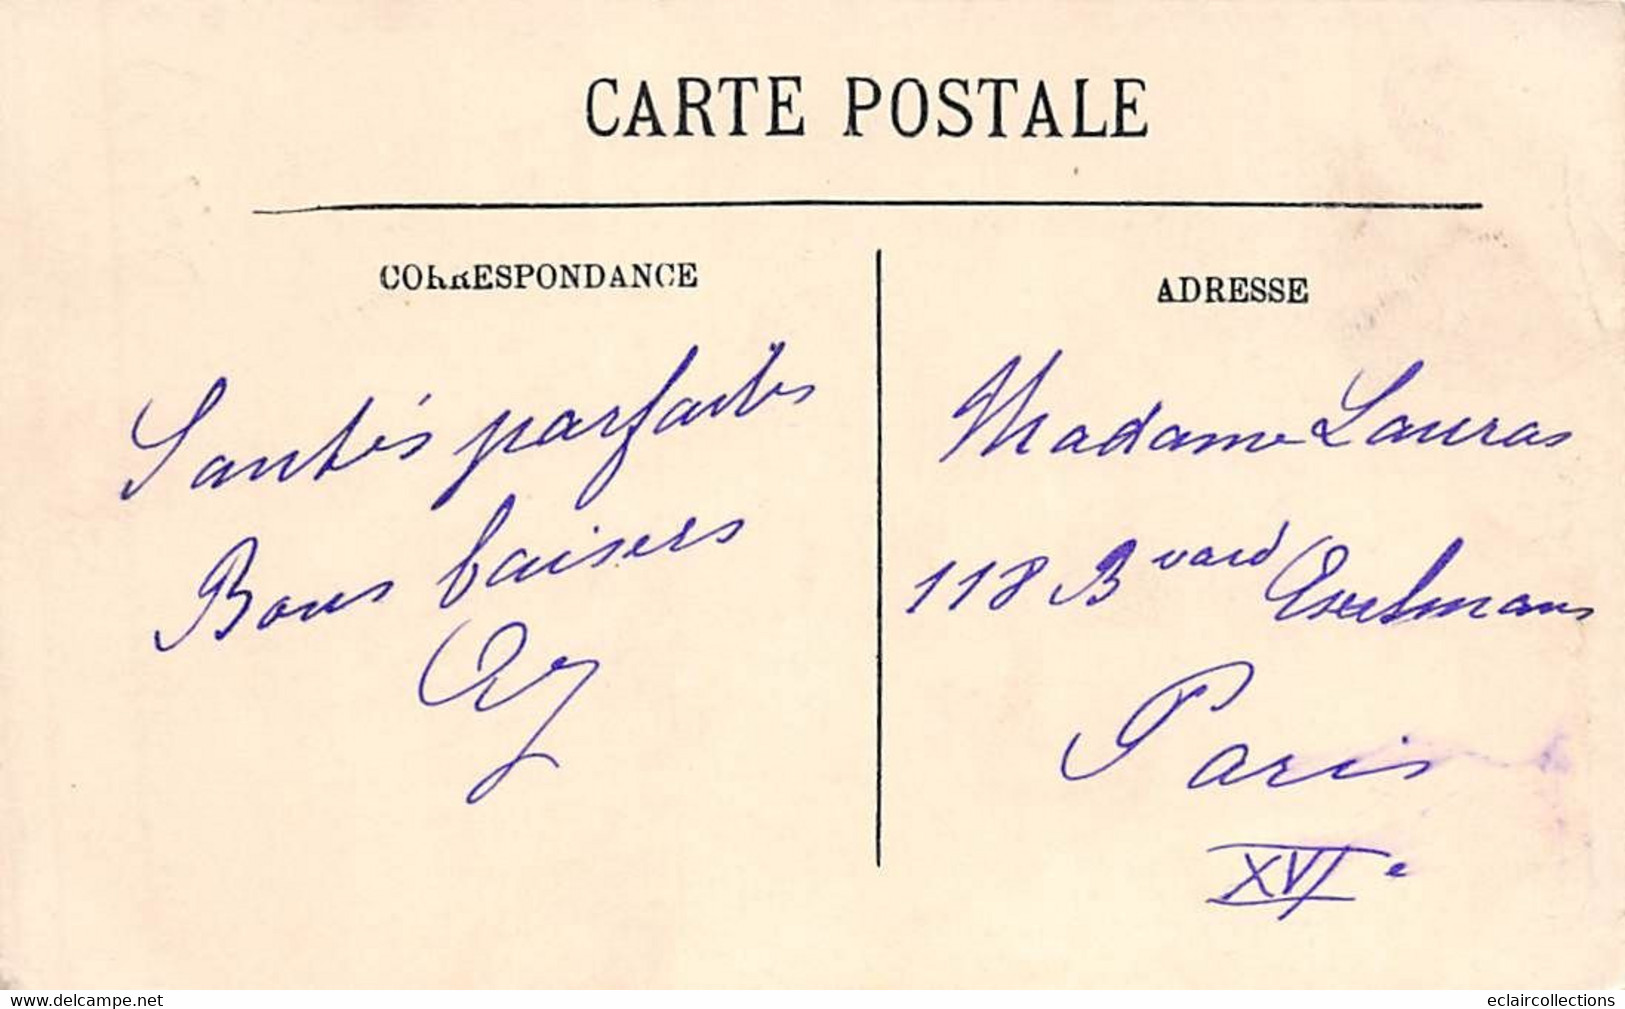 CARTE POSTALE
CORRESPONDANCE
Santés parfaites
Bons baisers
ADRESSE
Madame Lauras
118 Bvard Exelmans
Paris
XVIe
www.delcampe.net
eclaircollections